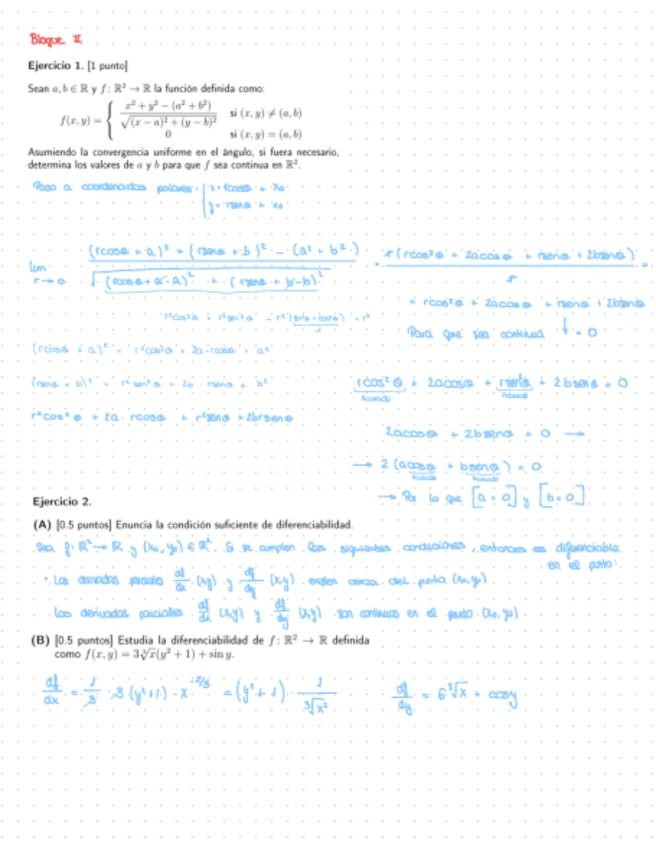 Bloque II.
Ejercicio 1. [1 punto]
Sean a, b ∈ ℝ y f: ℝ² → ℝ la función definida como:
f(x, y) = { (x² + y² − (a² + b²)) / √((x − a)² + (y − b)²) si (x, y) ≠ (a, b)
0 si (x, y) = (a, b)
Asumiendo la convergencia uniforme en el ángulo, si fuera necesario,
determina los valores de a y b para que f sea continua en ℝ².
Paso a coordenadas polares: { x = rcosθ + x₀
y = rsenθ + x₀
lim r→0 ((rcosθ + a)² + (rsenθ + b)² − (a² + b²)) / √((rcosθ + a − a)² + (rsenθ + b − b)²) = r(rcos²θ + 2acosθ + rsenθ + 2bsenθ) / r =
r²cos²θ + r²sen²θ = r²(sen²θ + cos²θ) = r²
1
= rcos²θ + 2acosθ + rsenθ + 2bsenθ
Para que sea continua ↓ = 0
(rcosθ + a)² = r²cos²θ + 2a · rcosθ + a²
(rsenθ + b)² = r²sen²θ + 2b · rsenθ + b²
r²cos²θ + 2a · rcosθ + r²senθ + 2brsenθ
rcos²θ + 2acosθ + rsen²θ + 2bsenθ = 0
Acotado Acotado
2acosθ + 2bsenθ = 0 →
→ 2(acosθ + bsenθ) = 0
Acotado Acotado
→ Por lo que [a = 0] y [b = 0]
Ejercicio 2.
(A) [0.5 puntos] Enuncia la condición suficiente de diferenciabilidad.
Sea f: ℝ² → ℝ y (x₀, y₀) ∈ ℝ². Si se cumplen las siguientes condiciones, entonces es diferenciable
en el punto:
· Las derivadas parciales df/dx (x,y) y df/dy (x,y) existen cerca del punto (x₀, y₀)
· Las derivadas parciales df/dx (x,y) y df/dy (x,y) son continuas en el punto (x₀, y₀)
(B) [0.5 puntos] Estudia la diferenciabilidad de f: ℝ² → ℝ definida
como f(x, y) = 3∛x(y² + 1) + sin y.
df/dx = 1/3 · 3 (y² + 1) · x^(-2/3) = (y² + 1) · 1/∛x² df/dy = 6∛x + cosy